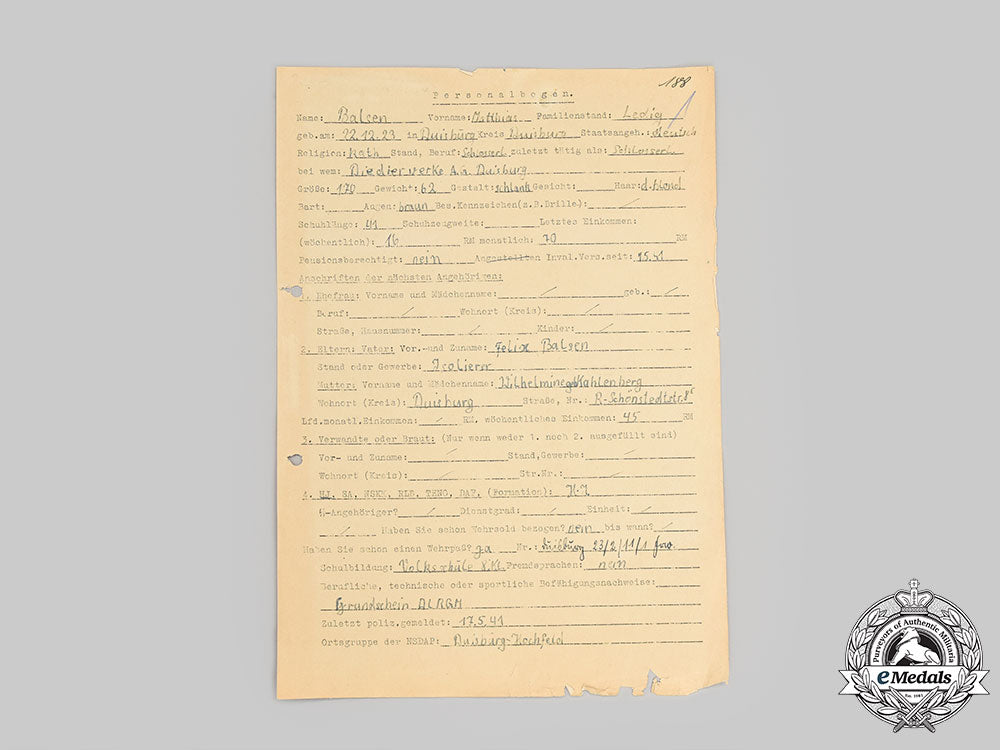 188
Personalbogen.
Name: Balsen Vorname: Matthias Familienstand: Ledig
geb.am: 22.12.23 in Duisburg Kreis Duisburg Staatsangeh.: deutsch
Religion: Kath Stand, Beruf: Schlosserl. zuletzt tätig als: Schlosserl.
bei wem: Diedierwerke A.G. Duisburg
Größe: 170 Gewicht: 62 Gestalt: schlank Gesicht: Haar: d.blond
Bart: Augen: braun Bes.Kennzeichen(z.B.Brille):
Schuhlänge: 41 Schuhzeugweite: Letztes Einkommen:
(wöchentlich): 16 RM monatlich: 70 RM
Pensionsberechtigt: nein Angestellten Inval.Vers.seit: 15.41
Anschriften der nächsten Angehörigen:
1. Ehefrau: Vorname und Mädchenname: geb.:
Beruf: Wohnort (Kreis):
Straße, Hausnummer: Kinder:
2. Eltern: Vater: Vor- und Zuname: Felix Balsen
Stand oder Gewerbe: Isolierer
Mutter: Vorname und Mädchenname: Wilhelmine geb Kahlenberg
Wohnort (Kreis): Duisburg Straße, Nr.: R-Schönstedtstr.
Lfd.monatl.Einkommen: RM, wöchentliches Einkommen: 45 RM
3. Verwandte oder Braut: (Nur wenn weder 1. noch 2. ausgefüllt sind)
Vor- und Zuname: Stand, Gewerbe:
Wohnort (Kreis): Str.Nr.:
4. HJ, SA, NSKK, RLB, TENO, DAF, (Formation): H.J
-Angehöriger? Dienstgrad: Einheit:
Haben Sie schon Wehrsold bezogen? nein bis wann?
Haben Sie schon einen Wehrpaß? ja Nr.: Duisburg 23/2/11/1
Schulbildung: Volksschule Fremdsprachen: nein
Berufliche, technische oder sportliche Befähigungsnachweise:
Grundschein DLRGM
Zuletzt poliz.gemeldet: 17.5.41
Ortsgruppe der NSDAP: Duisburg-Hochfeld
Purveyors of Authentic Militaria
eMedals